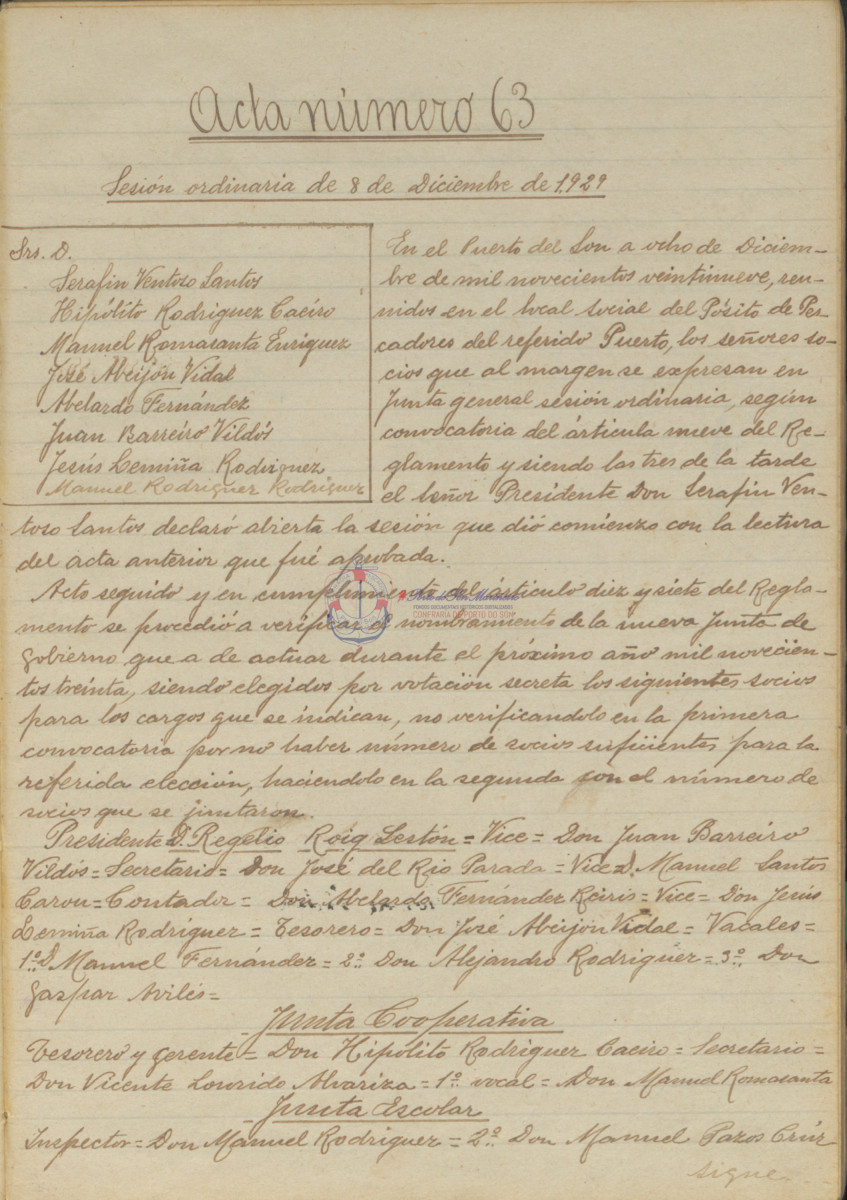 Acta número 63
Sesión ordinaria de 8 de Diciembre de 1.929
Srs. D.
Serafin Ventoso Santos
Hipólito Rodriguez Caeiro
Manuel Romasanta Enriquez
José Abeijón Vidal
Abelardo Fernández
Juan Barreiro Vildós
Jesús Lemiña Rodriguez
Manuel Rodriguez Rodriguez
En el Puerto del Son a ocho de Diciem-
bre de mil novecientos veintinueve, reu-
nidos en el local social del Pósito de Pes-
cadores del referido Puerto, los señores so-
cios que al margen se expresan en
Junta general sesión ordinaria, según
convocatoria del árticula nueve del Re-
glamento y siendo las tres de la tarde
el Señor Presidente Don Serafin Ven-
toso Santos declaró abierta la sesión que dió comienzo con la lectura
del acta anterior que fué aprobada.
Acto seguido y en cumplimiento del árticulo diez y siete del Regla-
mento se procedió a verificar el nombramiento de la nueva Junta de
Gobierno que a de actuar durante el próximo año mil novecien-
tos treinta, siendo elegidos por votación secreta los siguientes socios
para los cargos que se indican, no verificandolo en la primera
convocatoria por no haber número de socios sufiientes para la
referida elección, haciéndolo en la segunda con el número de
socios que se juntaron.
Presidente D. Regelio Roig Lestón = Vice = Don Juan Barreiro
Vildós = Secretario = Don José del Rio Parada = Vice D. Manuel Santos
Carou = Contador = Don Abelardo Fernández Reiris = Vice = Don Jesús
Lemiña Rodríguez = Tesorero = Don José Abeijón Vidal = Vacales =
1º D. Manuel Fernández = 2º Don Alejandro Rodriguez = 3º Don
Gaspar Avilés =
Junta Cooperativa
Tesorero y gerente = Don Hipólito Rodriguez Caeiro = Secretario =
Don Vicente Lourido Alvariza = 1º vocal = Don Manuel Romasanta
Junta Escolar
Inspector = Don Manuel Rodriguez = 2º Don Manuel Pazos Crúz
sigue
FONDOS DOCUMENTAIS HISTÓRICOS DIXITALIZADOS
CONFRARÍA DE PORTO DO SON